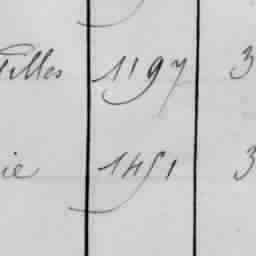 illes 1197 3
ie 1451 3